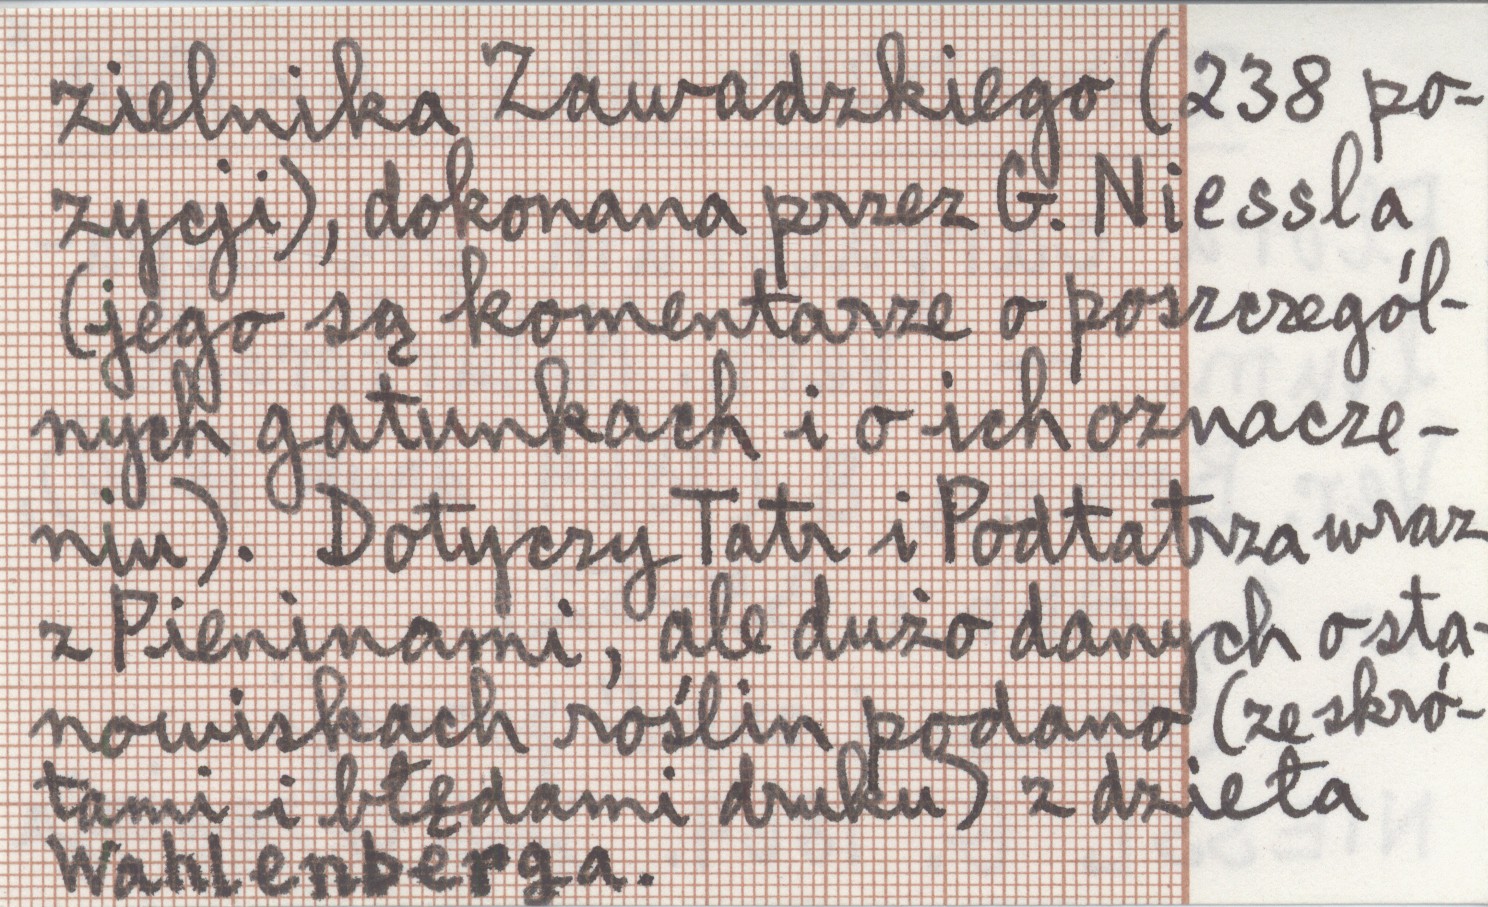 zielnika Zawadzkiego (238 po-
zycji), dokonana przez G. Niessla
(jego są komentarze o poszczegól-
nych gatunkach i o ich oznacze-
niu). Dotyczy Tatr i Podtatrza wraz
z Pieninami, ale dużo danych o sta-
nowiskach roślin podano (ze skró-
tami i błędami druku) z dzieła
Wahlenberga.